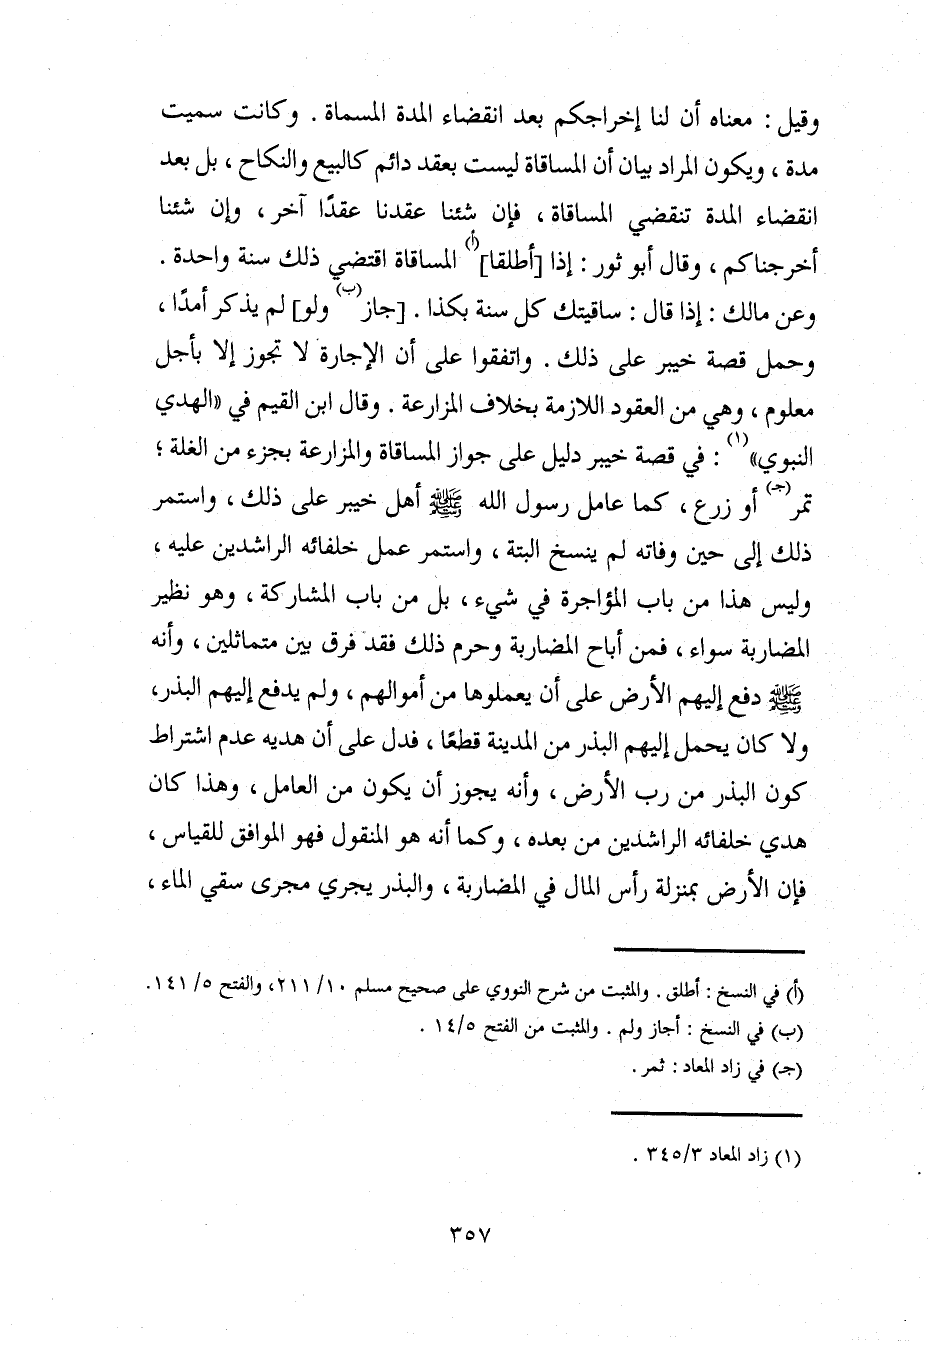 وقيل : معناه أن لنا إخراجكم بعد انقضاء المدة المسماة . وكانت سميت
مدة ، ويكون المراد بيان أن المساقاة ليست بعقد دائم كالبيع والنكاح ، بل بعد
انقضاء المدة تنقضي المساقاة ، فإن شئنا عقدنا عقدًا آخر ، وإن شئنا
أخرجناكم ، وقال أبو ثور : إذا [أطلقا](أ) المساقاة اقتضي ذلك سنة واحدة .
وعن مالك : إذا قال : ساقيتك كل سنة بكذا . [جاز(ب) ولو] لم يذكر أمدًا ،
وحمل قصة خيبر على ذلك . واتفقوا على أن الإجارة لا تجوز إلا بأجل
معلوم ، وهي من العقود اللازمة بخلاف المزارعة . وقال ابن القيم في «الهدي
النبوي»(١) : في قصة خيبر دليل على جواز المساقاة والمزارعة بجزء من الغلة ؛
تمر(جـ) أو زرع ، كما عامل رسول الله ﷺ أهل خيبر على ذلك ، واستمر
ذلك إلى حين وفاته لم ينسخ البتة ، واستمر عمل خلفائه الراشدين عليه ،
وليس هذا من باب المؤاجرة في شيء ، بل من باب المشاركة ، وهو نظير
المضاربة سواء ، فمن أباح المضاربة وحرم ذلك فقد فرق بين متماثلين ، وأنه
ﷺ دفع إليهم الأرض على أن يعملوها من أموالهم ، ولم يدفع إليهم البذر،
ولا كان يحمل إليهم البذر من المدينة قطعًا ، فدل على أن هديه عدم اشتراط
كون البذر من رب الأرض ، وأنه يجوز أن يكون من العامل ، وهذا كان
هدي خلفائه الراشدين من بعده ، وكما أنه هو المنقول فهو الموافق للقياس ،
فإن الأرض بمنزلة رأس المال في المضاربة ، والبذر يجري مجرى سقي الماء ،
(أ) في النسخ : أطلق . والمثبت من شرح النووي على صحيح مسلم ١٠/ ٢١١، والفتح ٥/ ١٤١.
(ب) في النسخ : أجاز ولم . والمثبت من الفتح ١٤/٥ .
(جـ) في زاد المعاد : ثمر .
(١) زاد المعاد ٣٤٥/٣ .
٣٥٧